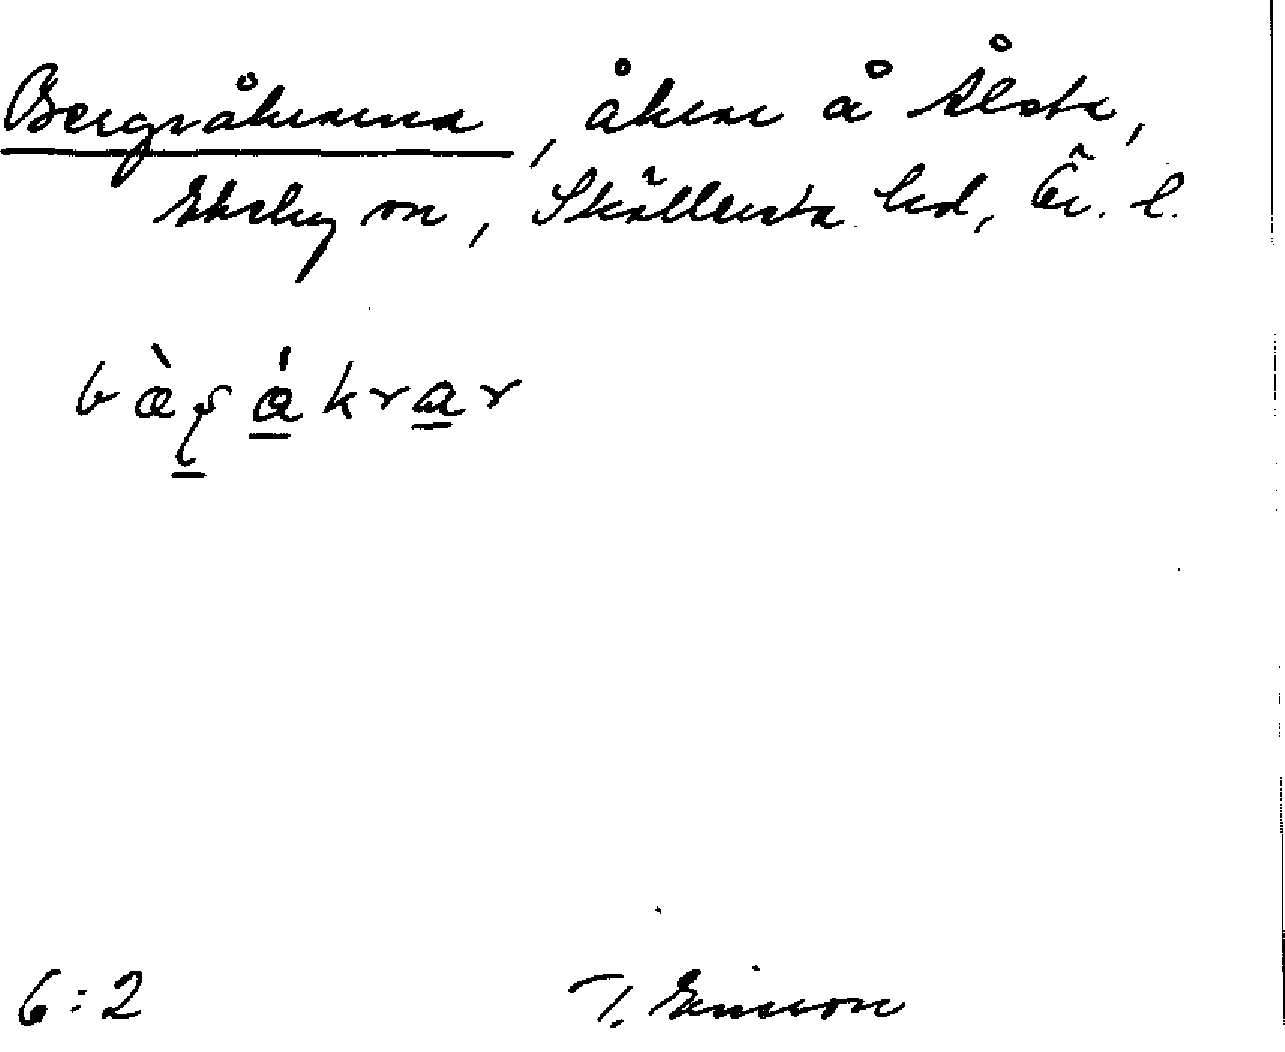 Bergsåkrarna, åkrar å Ålsta,
Ekeby sn, Sköllersta hd, Ör. l.
bæ̀ʂǻkrar
6:2 T. Ericsson